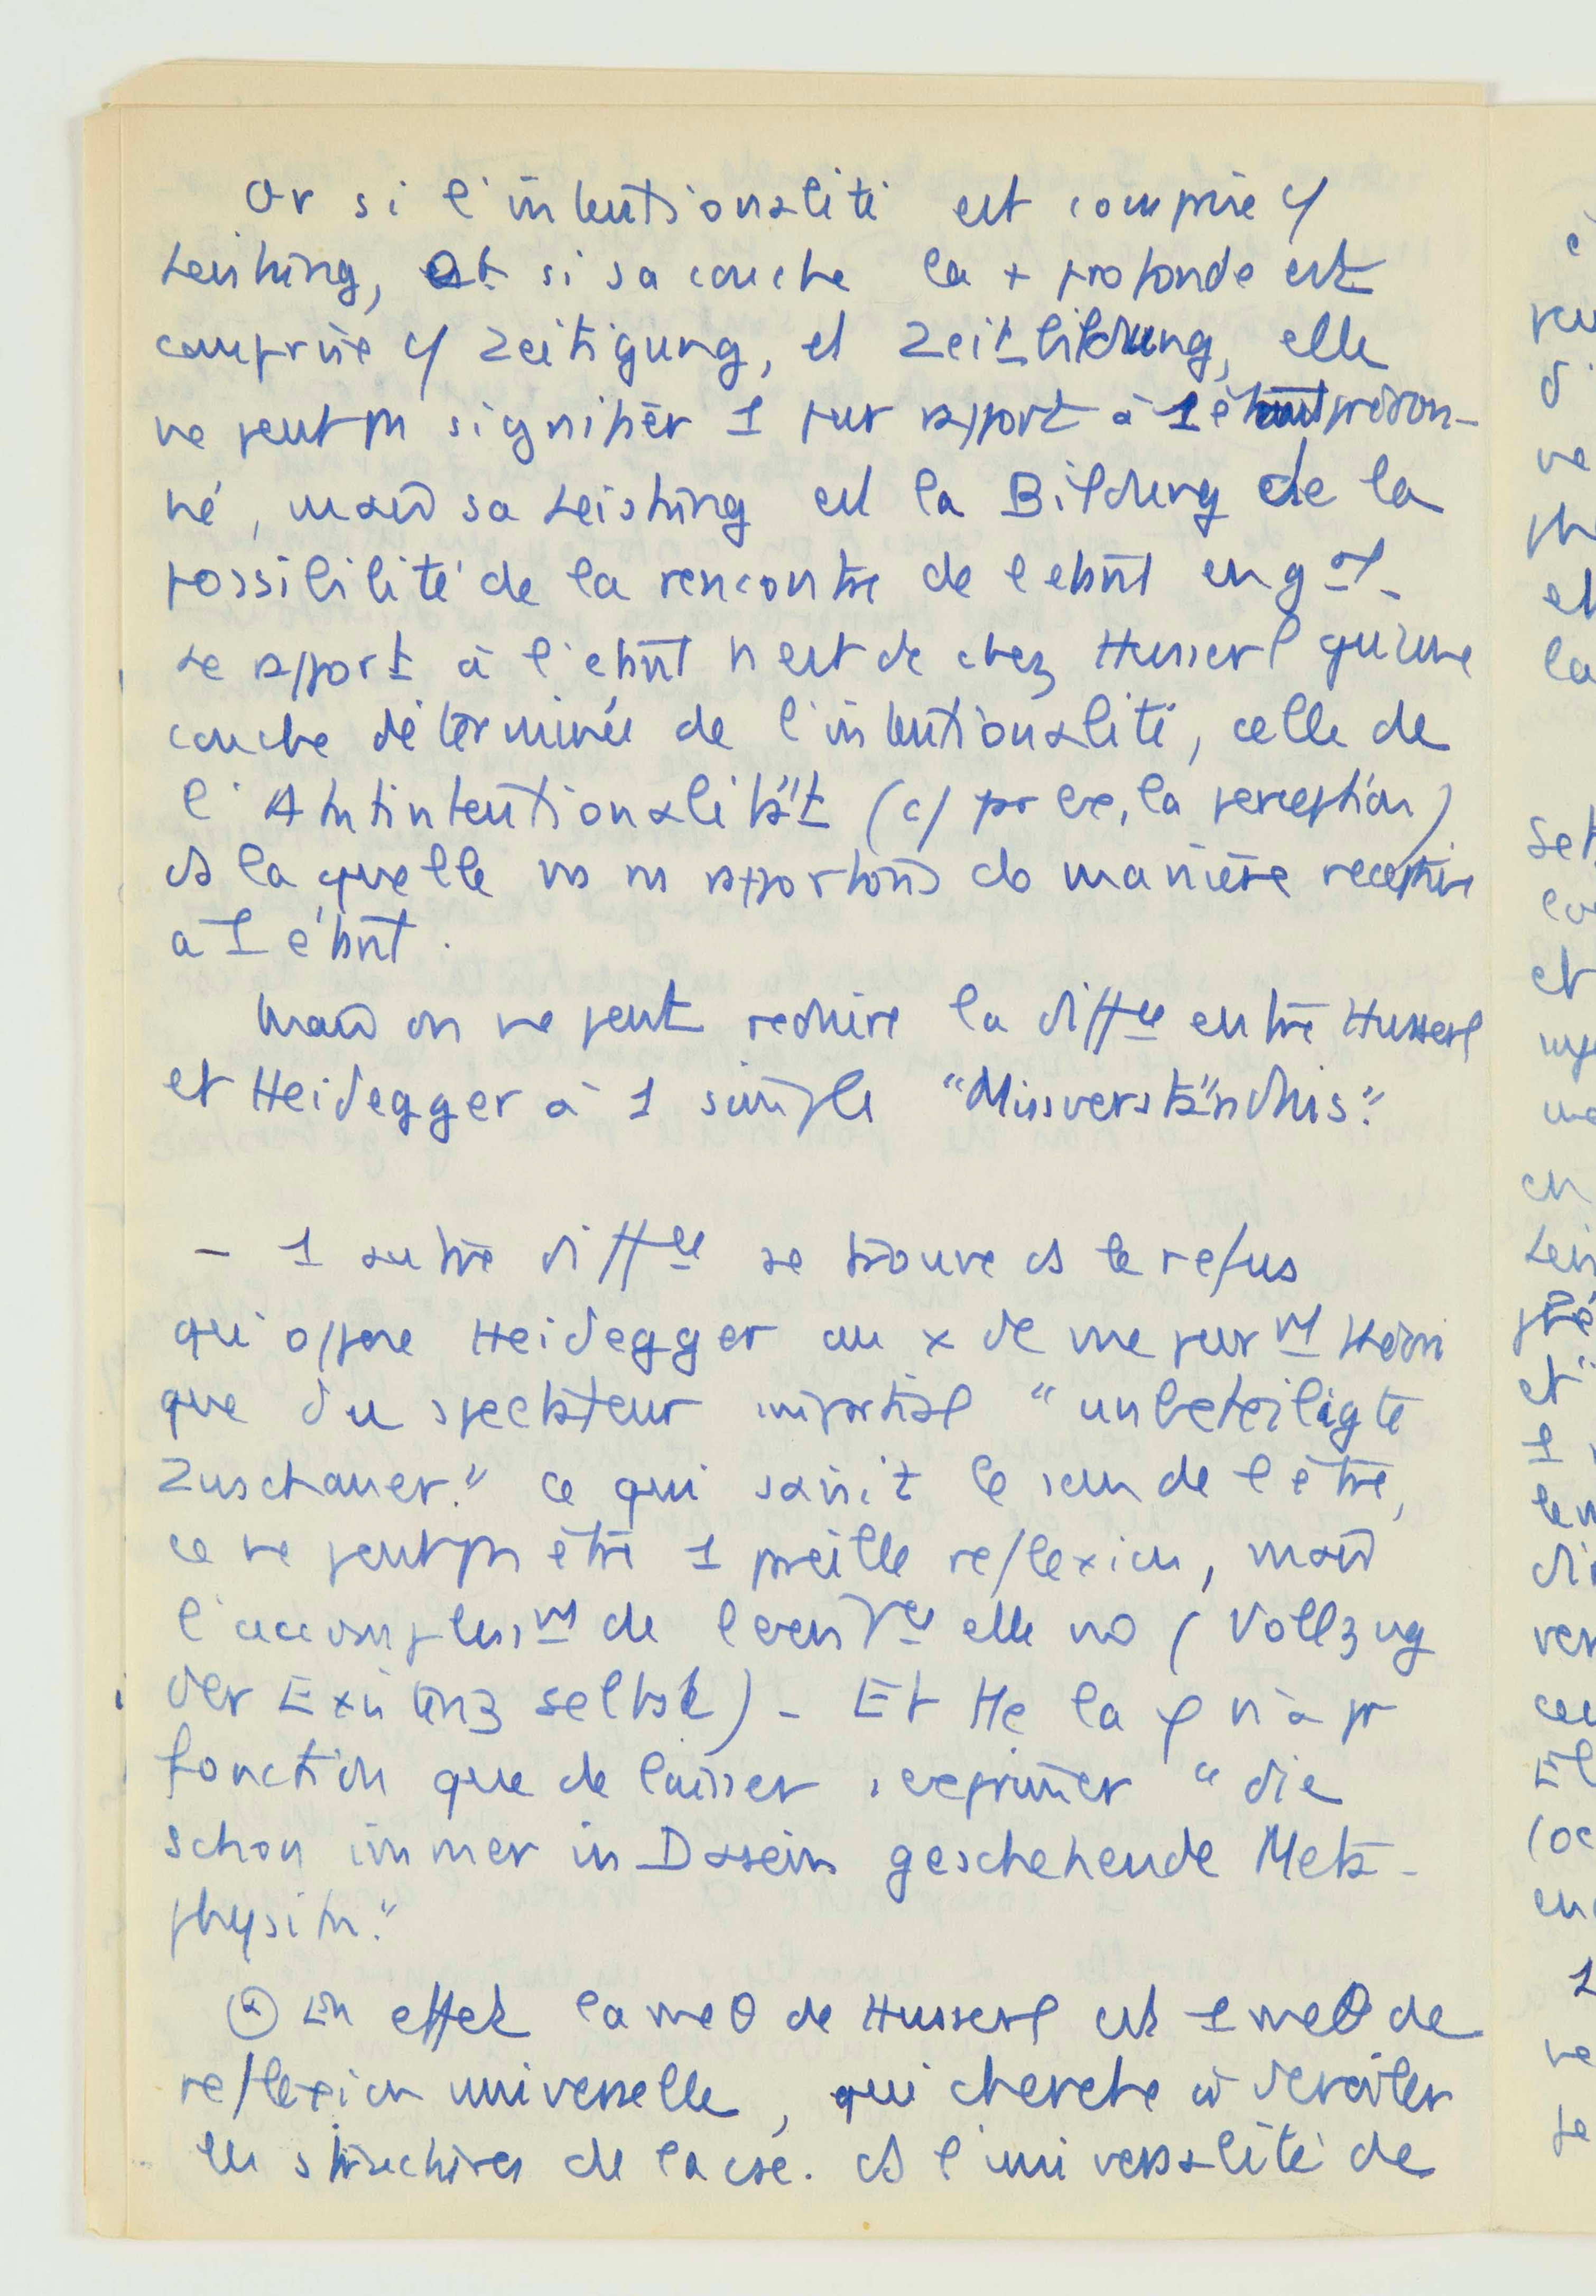 Or si l'intentionalité est comprise c/
Leistung, et si sa couche la + profonde est
comprise c/ Zeitigung, et Zeitbildung, elle
ne peut pas signifier 1 pur rapport à 1 étant prédon-
né, mais sa Leistung est la Bildung de la
possibilité de la rencontre de l'étant en gal.
Le rapport à l'étant n'est dc chez Husserl qu'une
couche déterminée de l'intentionalité, celle de
l'Aktintentionalität (c/ par ex, la perception)
ds laquelle ns ns rapportons de manière réceptive
à 1 étant.
Mais on ne peut réduire la diffce entre Husserl
et Heidegger à 1 simple "Missverständnis".
- 1 autre diffce se trouve ds le refus
qu'oppose Heidegger au x de vue purmt théori
que du spectateur impartial "unbeteiligte
Zuschauer." Ce qui saisit le sens de l'être,
ce ne peut pas être 1 pareille reflexion, mais
l'accomplissmt de l'existce elle mo (Vollzug
der Existenz selbst) - Et tte la φ n'a pr
fonction que de laisser s'exprimer "die
schon immer in Dasein geschehende Meta-
physik."
En effet la méθ de Husserl est 1 méθ de
reflexion universelle, qui cherche à dévoiler
les structures de la csce. ds l'universalité de